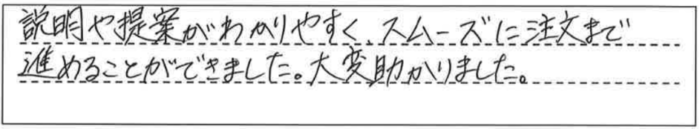 説明や提案がわかりやすく、スムーズに注文まで
進めることができました。大変助かりました。